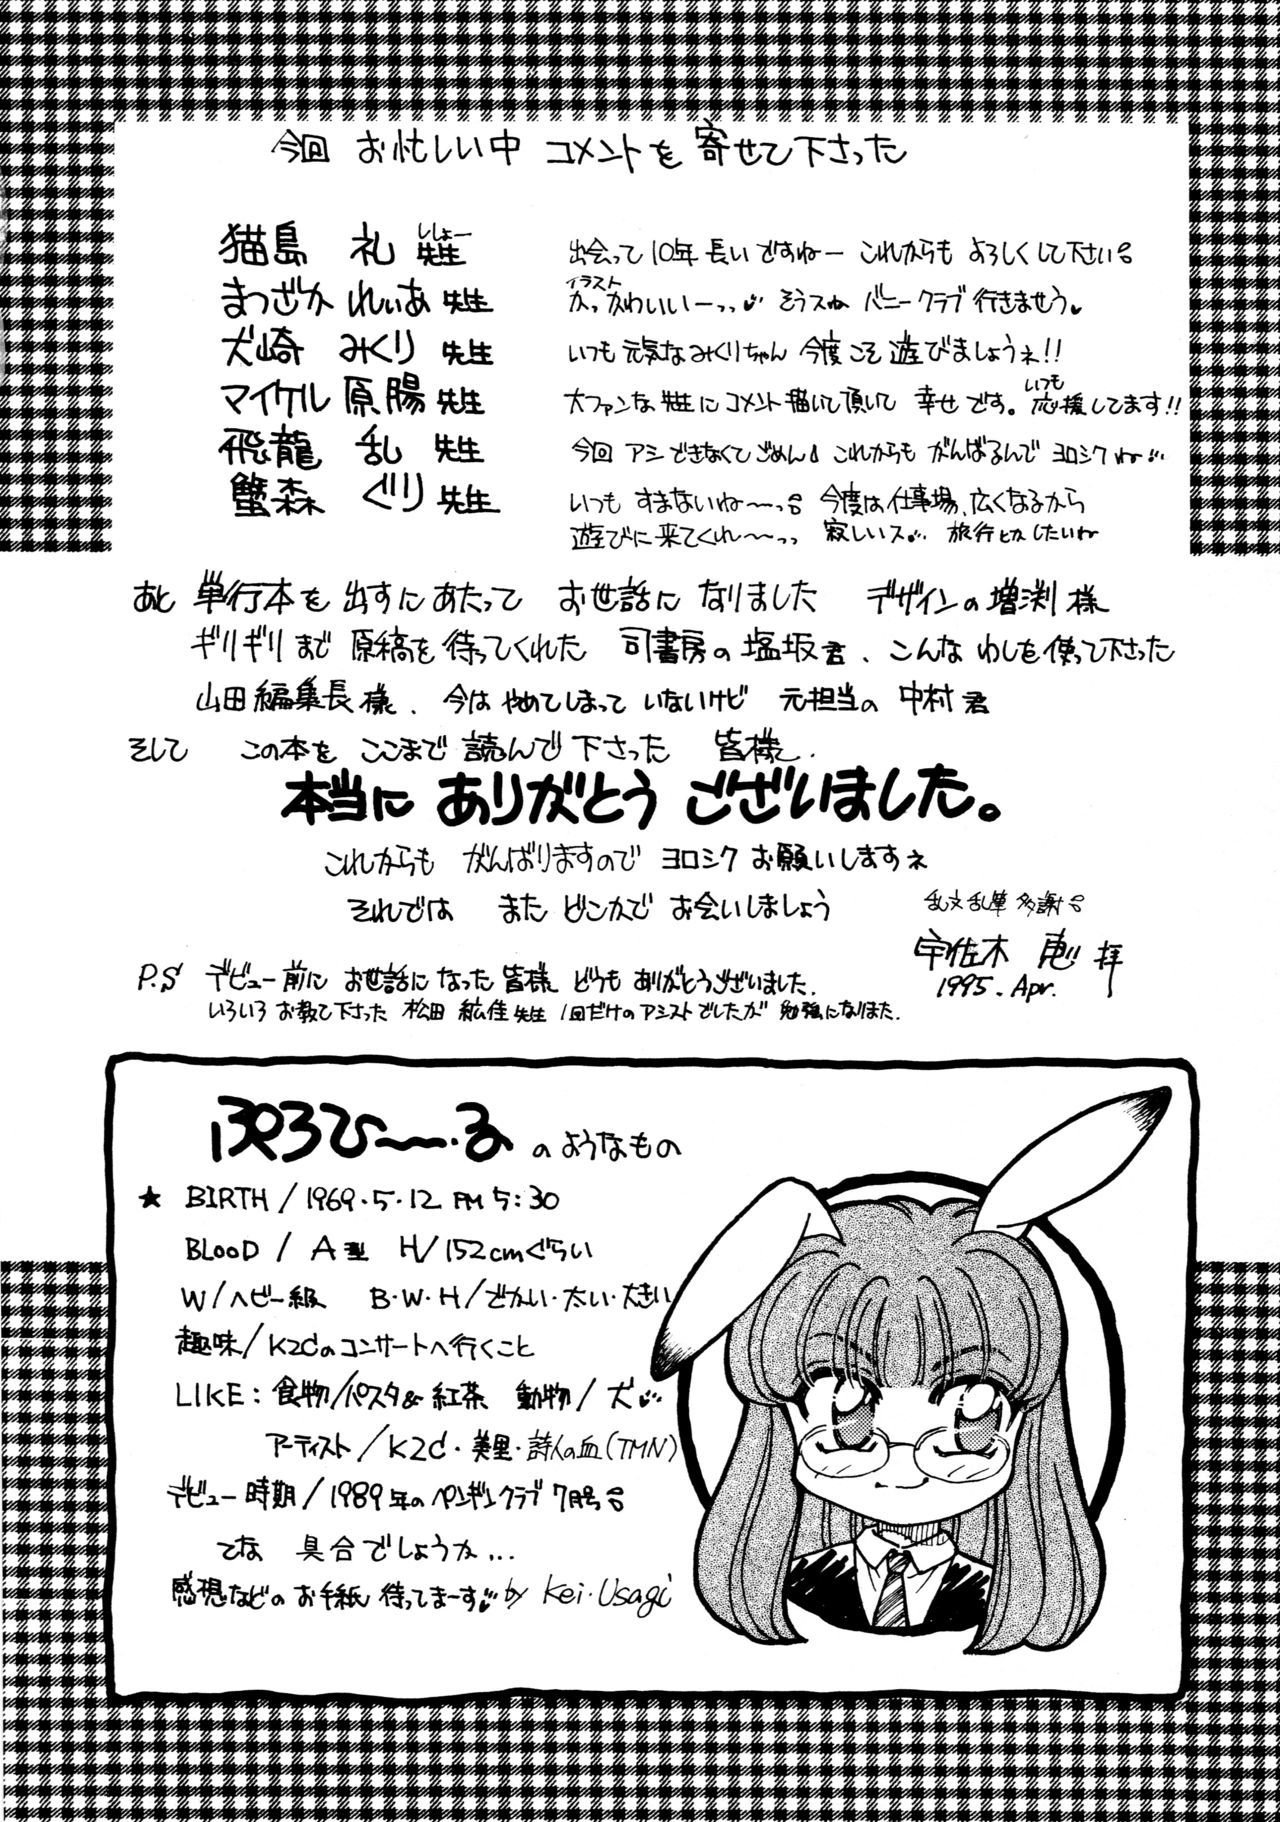 今回 お忙しい中 コメントを 寄せて下さった
猫島 礼 先生 ししょー 出会って 10年 長いですねー これからも よろしくして下さい
まつざか れいあ 先生 イラスト かっかわいいーっっ そうスね バニークラブ 行きませう。
犬崎 みくり 先生 いつも 元気な みくりちゃん 今度こそ 遊びましょうネ!!
マイケル 原腸 先生 大ファンな 先生に コメント描いて頂いて 幸せです。いつも 応援してます!!
飛龍 乱 先生 今回 アシ できなくて ごめん これからも がんばるんで ヨロシクね
蟹森 ぐり 先生 いつも すまないね〜〜っ 今度は 仕事場、広くなるから
遊びに 来てくれ〜〜っっ 寂しいス 旅行とか したいね
あと 単行本を 出すにあたって お世話に なりました デザインの 増渕 様
ギリギリまで 原稿を 待ってくれた 司書房の 塩坂君、こんな わしを 使って下さった
山田 編集長様、今は やめてしまって いないけど 元担当の 中村君
そして この本を ここまで 読んで 下さった 皆様、
本当に ありがとう ございました。
これからも がんばりますので ヨロシク お願いしますネ
それでは また どこかで お会いしましょう
乱文乱筆 多謝
宇佐木 恵 拝
1995. Apr.
P.S デビュー前に お世話に なった 皆様 どうも ありがとうございました。
いろいろ お教え下さった 松田 紘佳 先生 1回だけの アシストでしたが 勉強になりました。
ぷろひ〜〜るのようなもの
★ BIRTH / 1969・5・12 PM 5:30
BLOOD / A型 H/152cmぐらい
W/ヘビー級 B・W・H/でかい・太い・大きい
趣味/K2Cのコンサートへ行くこと
LIKE: 食物/パスタ& 紅茶 動物/犬
アーティスト/K2C・美里・詩人の血(TMN)
デビュー時期/1989年のペンギンクラブ 7月号
てな 具合でしょうか...
感想などの お手紙 待ってまーす by Kei・Usagi